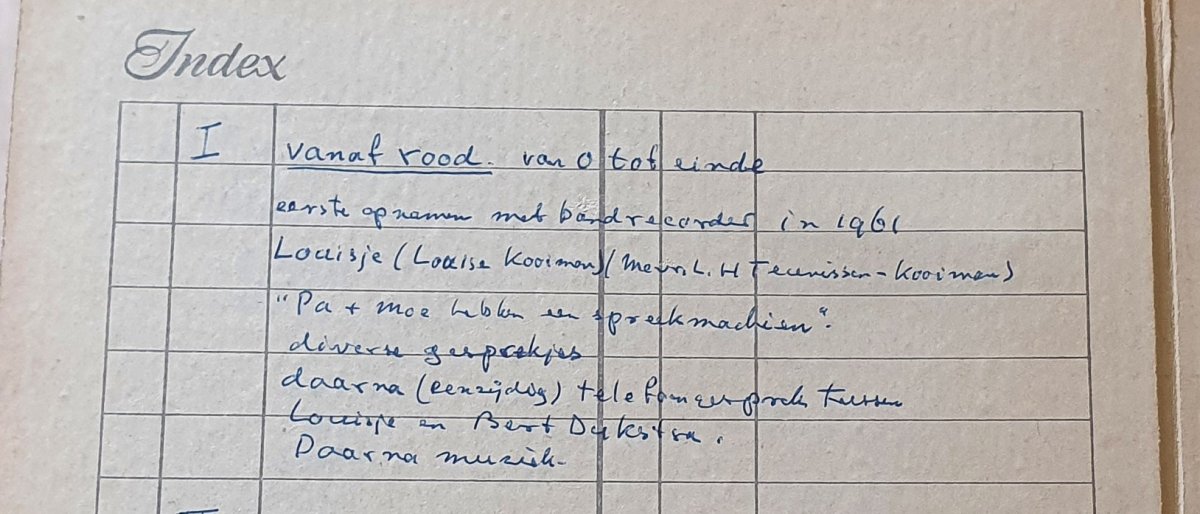 Index
I vanaf rood. van 0 tot einde
eerste opnamen met bandrecorder in 1961
Louisje (Louise Kooiman) (Mevr. L. H Teunissen-Kooiman)
"Pa + moe hebben een spreekmachien".
diverse gesprekjes
daarna (eenzijdig) telefoongesprek tussen
Louisje en Bert Dijkstra.
Daarna muziek.